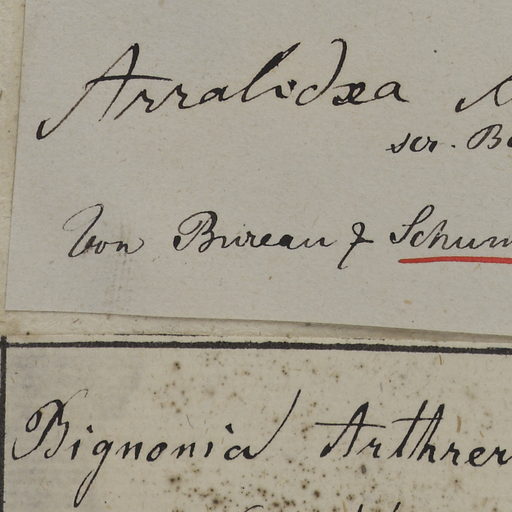 Arralidæa
scr. B
Von Bureau & Schum
Bignonia Arthrer